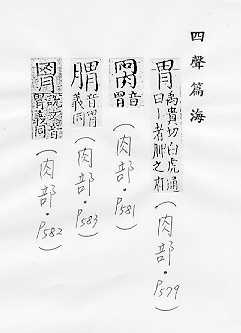 四聲篇海
胃 禹貴切白虎通曰胃者脾之府 (肉部·P579)
音胃 (肉部·P581)
腪 音胃義同 (肉部·P583)
說文音胃義同 (肉部·P582)